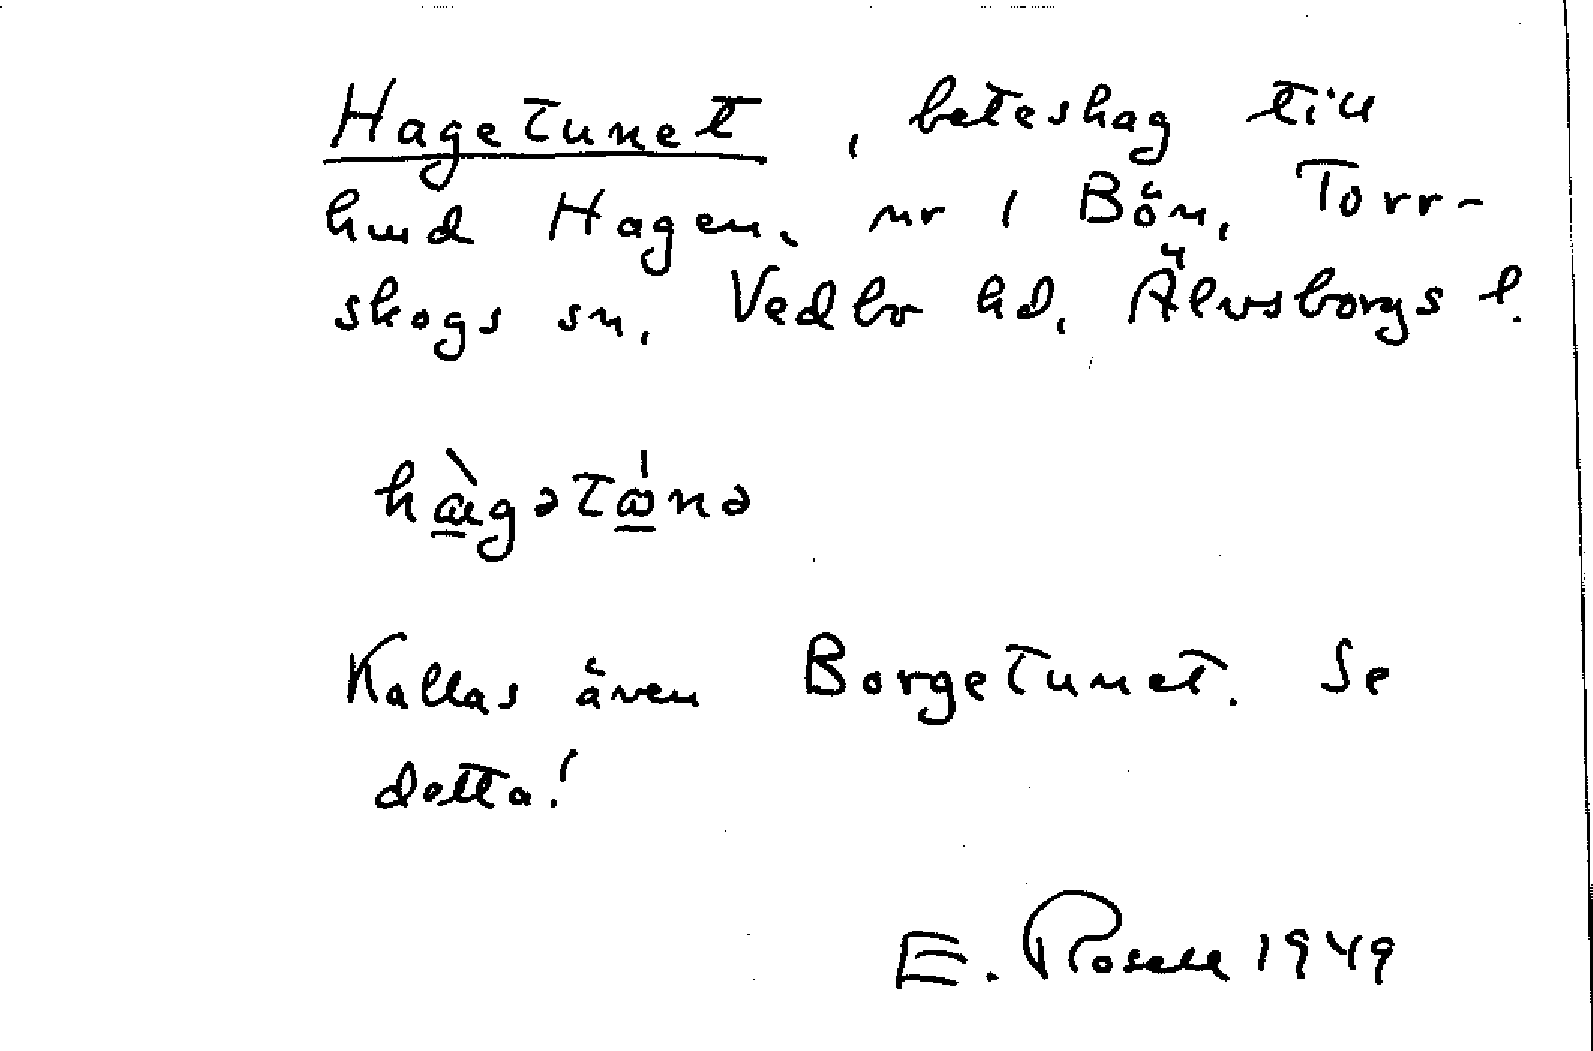 Hagetunet, beteshag till
hmd Hagen, nr 1 Bön, Torr-
skogs sn, Vedbo hd, Älvsborgs l.
Kallas även Borgetunet. Se
detta!
E. Rosell 1949